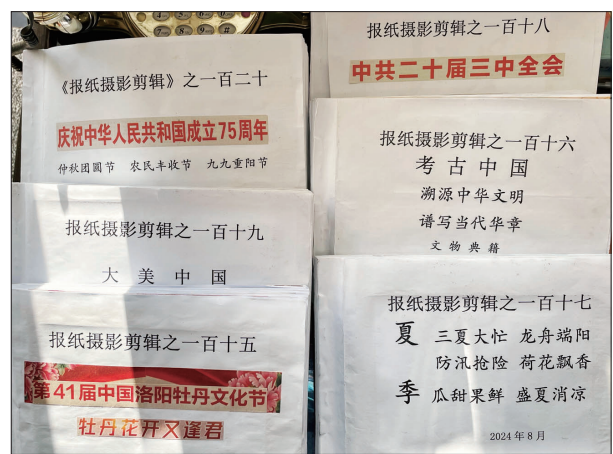 《报纸摄影剪辑》之一百二十
庆祝中华人民共和国成立75周年
仲秋团圆节 农民丰收节 九九重阳节
报纸摄影剪辑之一百十九
大美中国
报纸摄影剪辑之一百十五
第41届中国洛阳牡丹文化节
牡丹花开又逢君
报纸摄影剪辑之一百十八
中共二十届三中全会
报纸摄影剪辑之一百十六
考古中国
溯源中华文明
谱写当代华章
文物典籍
报纸摄影剪辑之一百十七
夏 三夏大忙 龙舟端阳
防汛抢险 荷花飘香
季 瓜甜果鲜 盛夏消凉
2024年8月